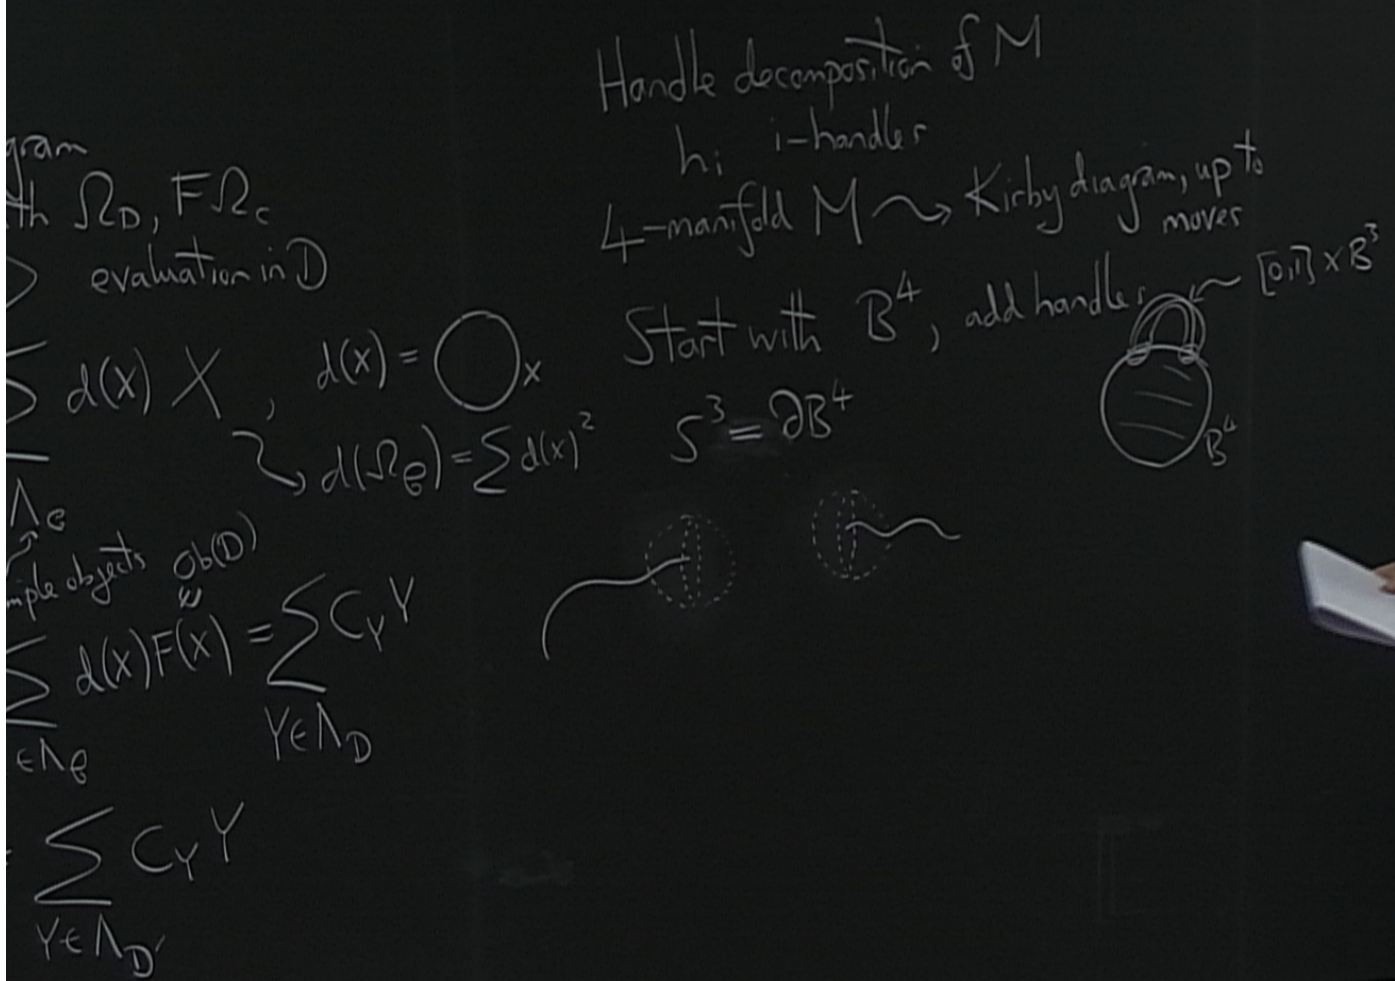 gram
th Ω_D, FΩ_C
evaluation in D
∑ d(x) X , d(x) = ◯_X
d(Ω_ϐ) = ∑ d(x)²
Λ_ϐ
mple objects ob(D)
∑ d(x)F(x) = ∑ C_Y Y
∈Λ_ϐ Y∈Λ_D
∑ C_Y Y
Y∈Λ_D'
Handle decomposition of M
h_i i-handles
4-manifold M ⇝ Kirby diagram, up to
moves
Start with B⁴, add handles
[0,1] × B³
B⁴
S³ = ∂B⁴